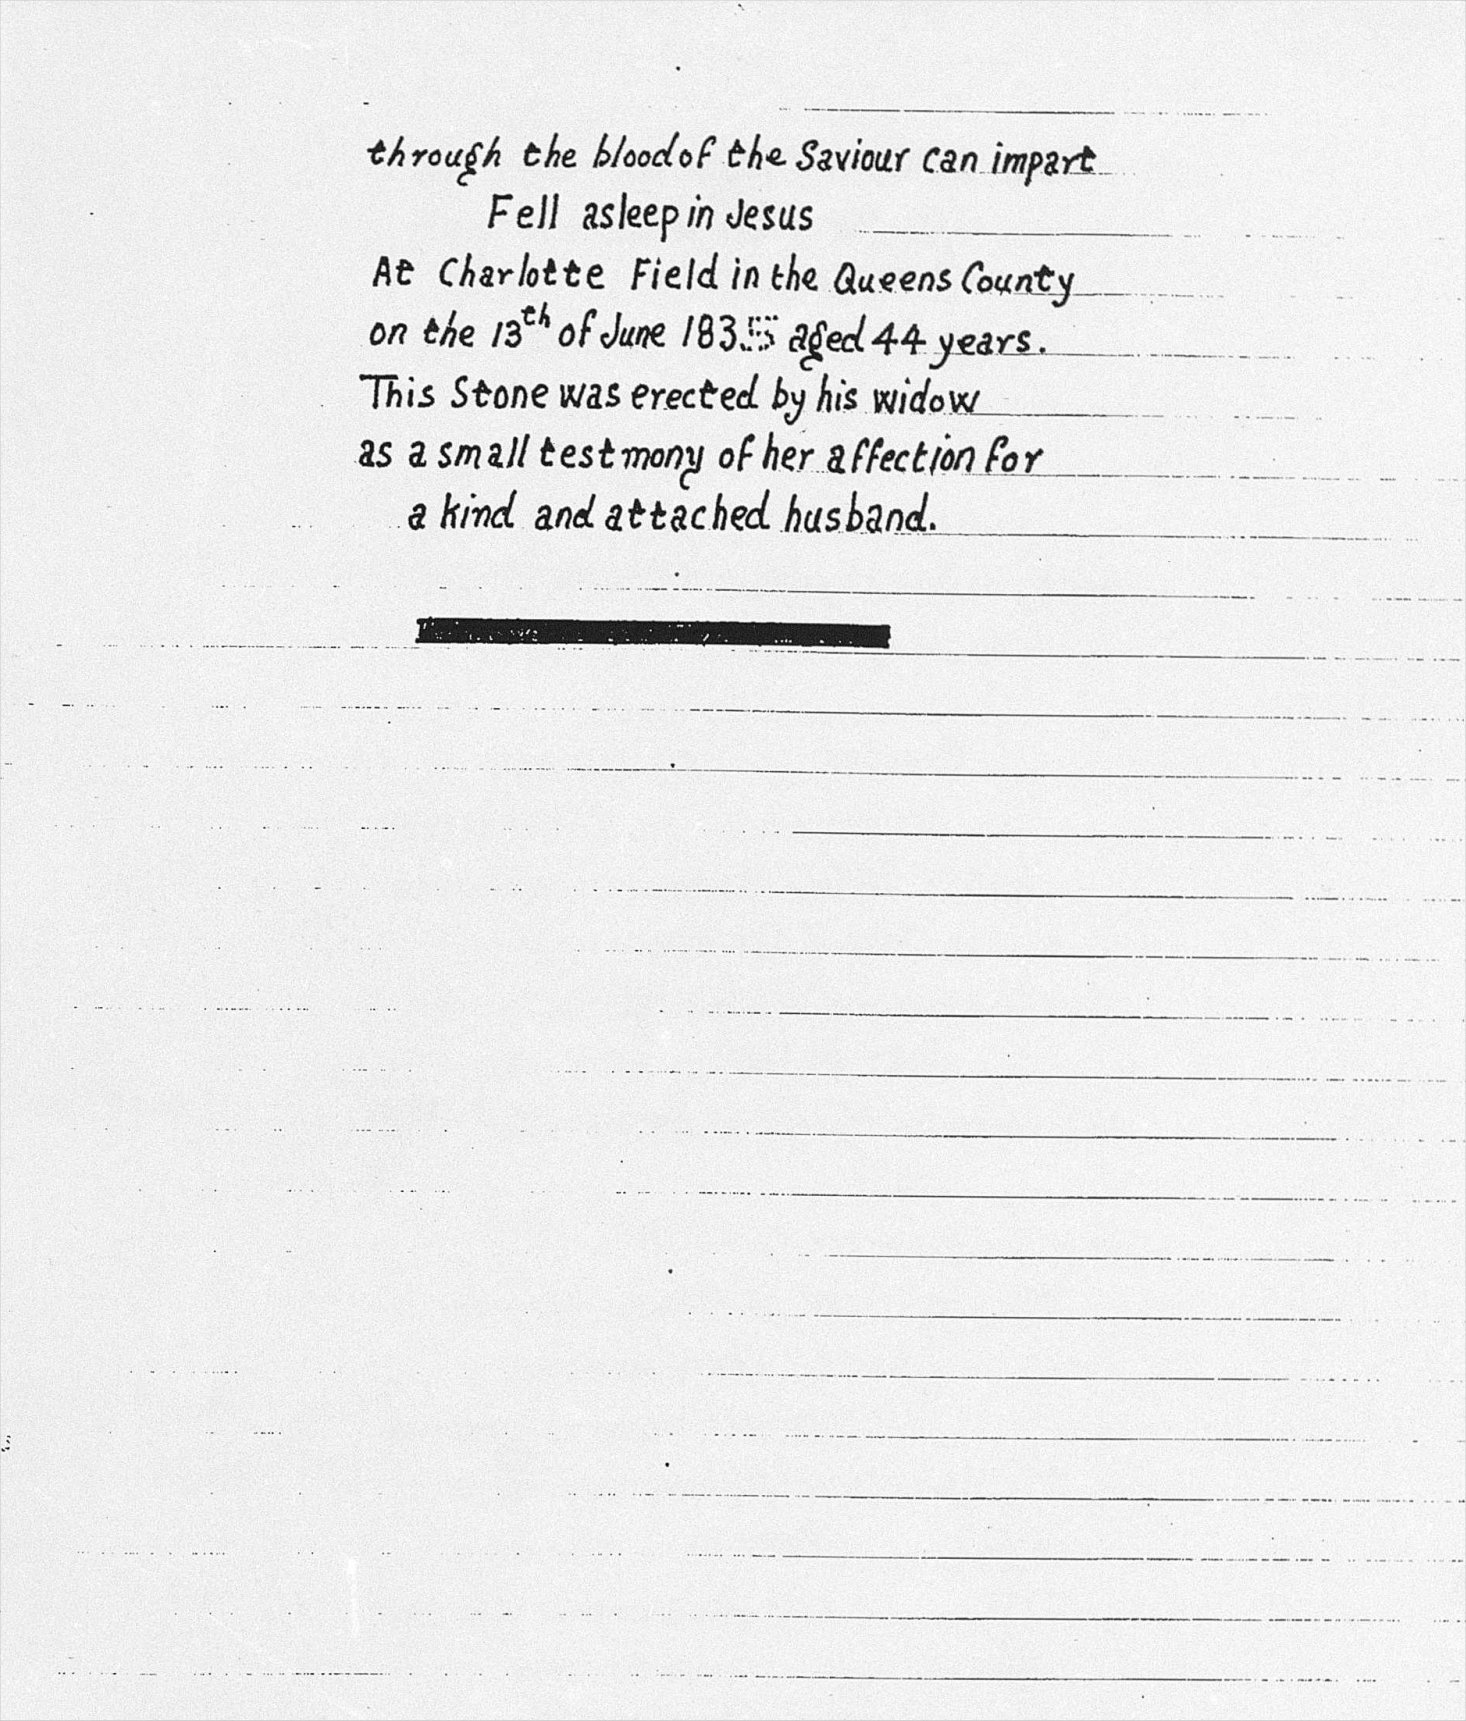 through the blood of the Saviour can impart
Fell asleep in Jesus
At Charlotte Field in the Queens County
on the 13th of June 1835 aged 44 years.
This Stone was erected by his widow
as a small testmony of her affection for
a kind and attached husband.